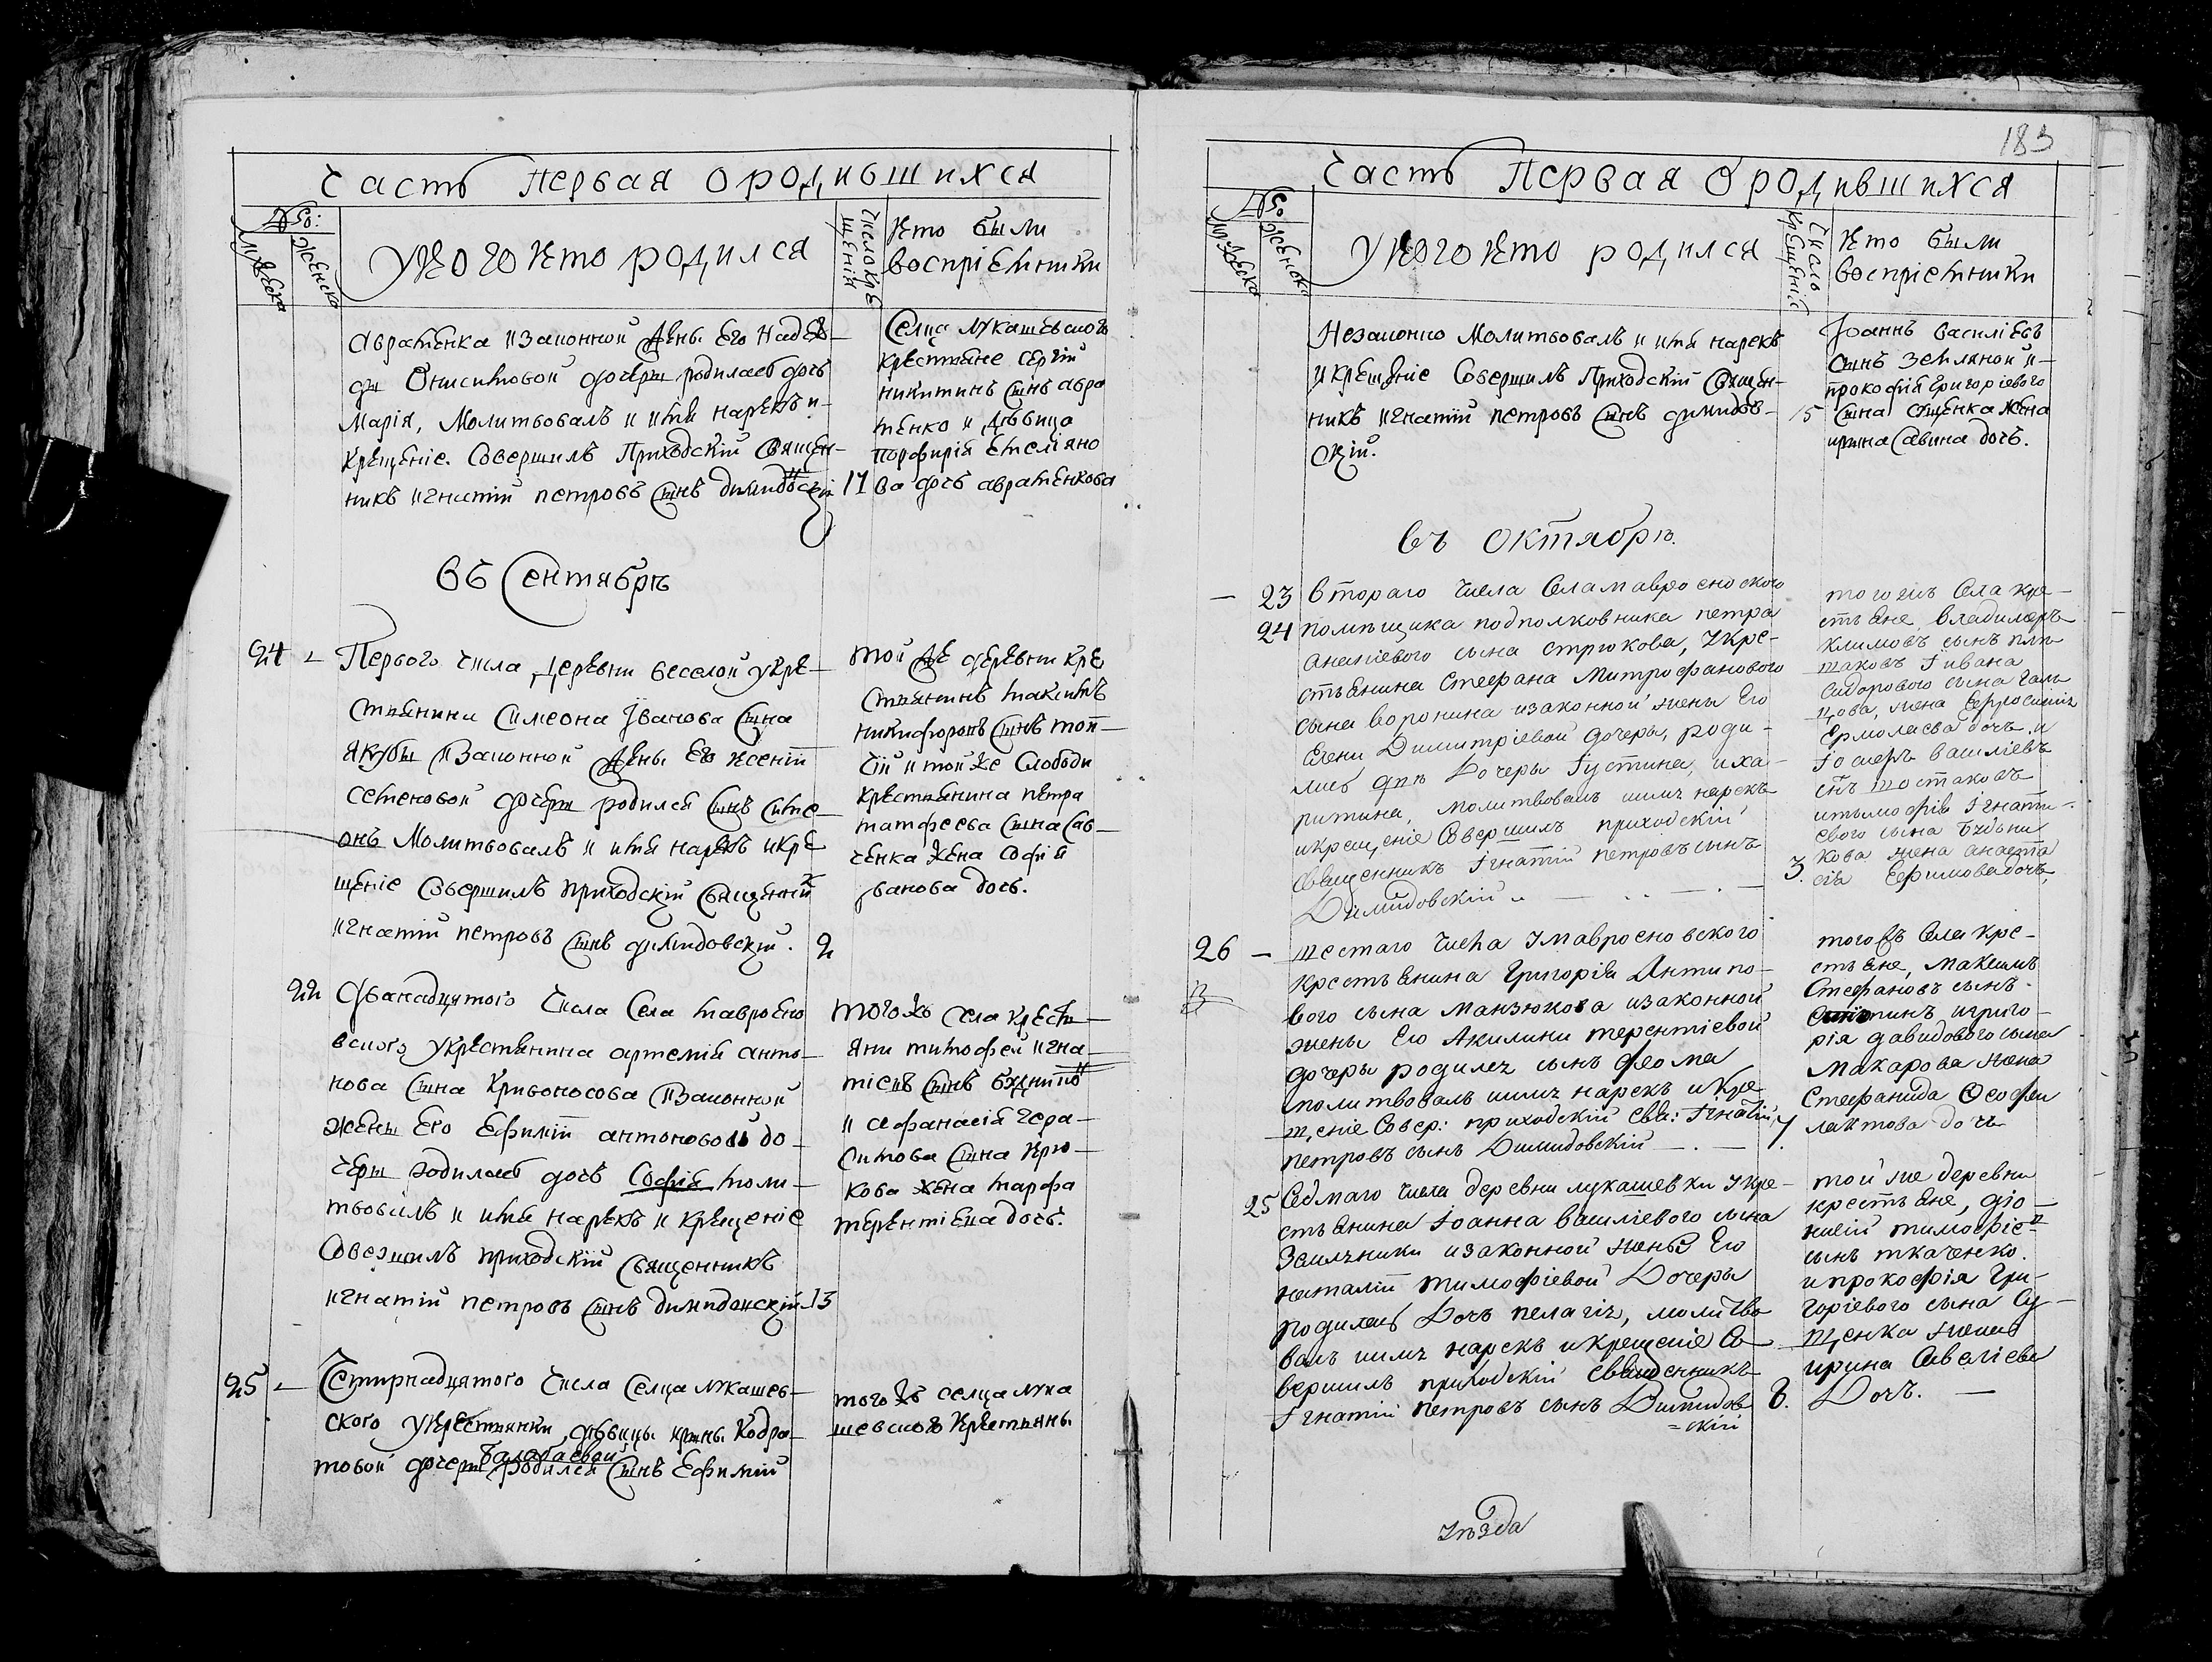 Часть Первая О родившихся
Число кре
щеній
Кто были
У кого кто родился
воспріемники
Женска
Авраменка и законной жены его Надеж-
ды Онисимовой дочеры родилась дочь
Марія, Молитвовалъ и имя нарекъ и-
Крещеніе Совершилъ Приходскій Священ-
никъ Игнатій Петровъ сынъ Димидовскій
17
Селца Лукашевского
крестьяне Сергій
Никитинъ сынъ Авра
менко и девица
Порфирія Емеліяно
ва дочь Авраменкова
Въ Сентябрѣ
24 -
Первого Числа Деревни Веселой у кре-
стьянина Симеона Іванова сына
Якубы и законной жены его Ксеніи
Семеновой дочеры родился сынъ Симе-
онъ Молитвовалъ и имя нарекъ и кре
щеніе Совершилъ приходскій Священникъ
Игнатій Петровъ сынъ Димидовскій.
2
Той же деревни кре
стьянинъ Максимъ
Никифоровъ сынъ
и той же Слободи
крестьянина Петра
Матфеева сына Сав-
ченка жена Софія
Іванова дочь.
22
Дванадцятого Числа Села Мавроено
вского у крестьянина Артемія Анто-
нова сына Кривоносова и законной
жены Его Ефиміи Антоновой до-
черы родилась дочь Софія Моли-
твовалъ и имя нарекъ и крещеніе
Совершилъ приходскій священникъ
Игнатій Петровъ сынъ Димидовскій
13
Того жъ села кресть-
яни Тимофей Игна-
тіевъ сынъ
и Афанасія Гера-
симова сына Крю-
кова жена Марфа
Терентіева дочь.
25 -
Четирнадцятого Числа Селца Лукашев-
ского у крестьянки девицы Ирины Кодра-
товой дочеры родился сынъ Ефимій
Балабаевой
того жъ селца Лука
шевского крестьяны
183
Часть Первая О родившихся
Женска
У кого кто родился
Число
Крещеніе
Кто были
воспріемники
Незаконно Молитвовалъ и имя нарекъ
и крещеніе Совершилъ Приходскій Священ-
никъ Игнатій Петровъ сынъ Димидов-
скій.
15
Іоаннъ Василіевъ
сынъ Земляной и-
Прокофія Григоріевого
сына Сущенка жена
Ирина Савина дочь.
въ октябрѣ.
- 23
24
Втораго числа Села Мавроеновского
помѣщика подполковника Петра
Ананіевого сына Стрюкова, у кре-
стьянина Стефана Митрофанового
сына Воронина и законной жены Его
Елены Димитріевой дочеры, роди-
лись двѣ Дочеры Іустина, и Ха-
ритина, молитвовалъ и имя нарекъ
и крещеніе Совершилъ приходскій
священникъ Ігнатій Петровъ сынъ
Димидовскій
3.
того жъ Села кре-
стьяне, Владимеръ
Климовъ сынъ
и Івана
Сидорового сына Галь
цова, жена Евфросинія
Ермолаева дочь, и
Іосифъ Василіевъ
сынъ Шостаковъ
и Тимофія Ігнати-
евого сына
кова жена Анаста
сія Ефимова дочь,
26 -
шестаго числа у Мавроеновского
крестьянина Григорія Антипо-
вого сына Манзюкова и законной
жены Его Акилини Терентіевой
дочеры родился сынъ Феома
молитвовалъ и имя нарекъ и кре-
щеніе Совер: приходскій Свя: Ігнатій
Петровъ сынъ Димидовскій
7.
того жъ Села кре-
стьяне, Максимъ
Стефановъ сынъ
и Григо-
рія Давидового сына
Макарова жена
Стефанида Феофи
лактова дочь
25
Седмаго числа деревни Лукашевки у кре-
стьянина Іоанна Василіевого сына
и законной жены Его
Наталіи Тимофіевой Дочеры
родилась Дочь Пелагія, молитво
валъ и имя нарекъ и крещеніе Со-
вершилъ приходскій священникъ
Ігнатій Петровъ сынъ Димидов
=скій
8.
той же деревни
крестьяне, Діо-
нисій Тимофіевъ
сынъ Ткаченко.
и Прокофія Гри-
горіевого сына Су-
щенка жена
Ирина Савеліева
Дочь. -